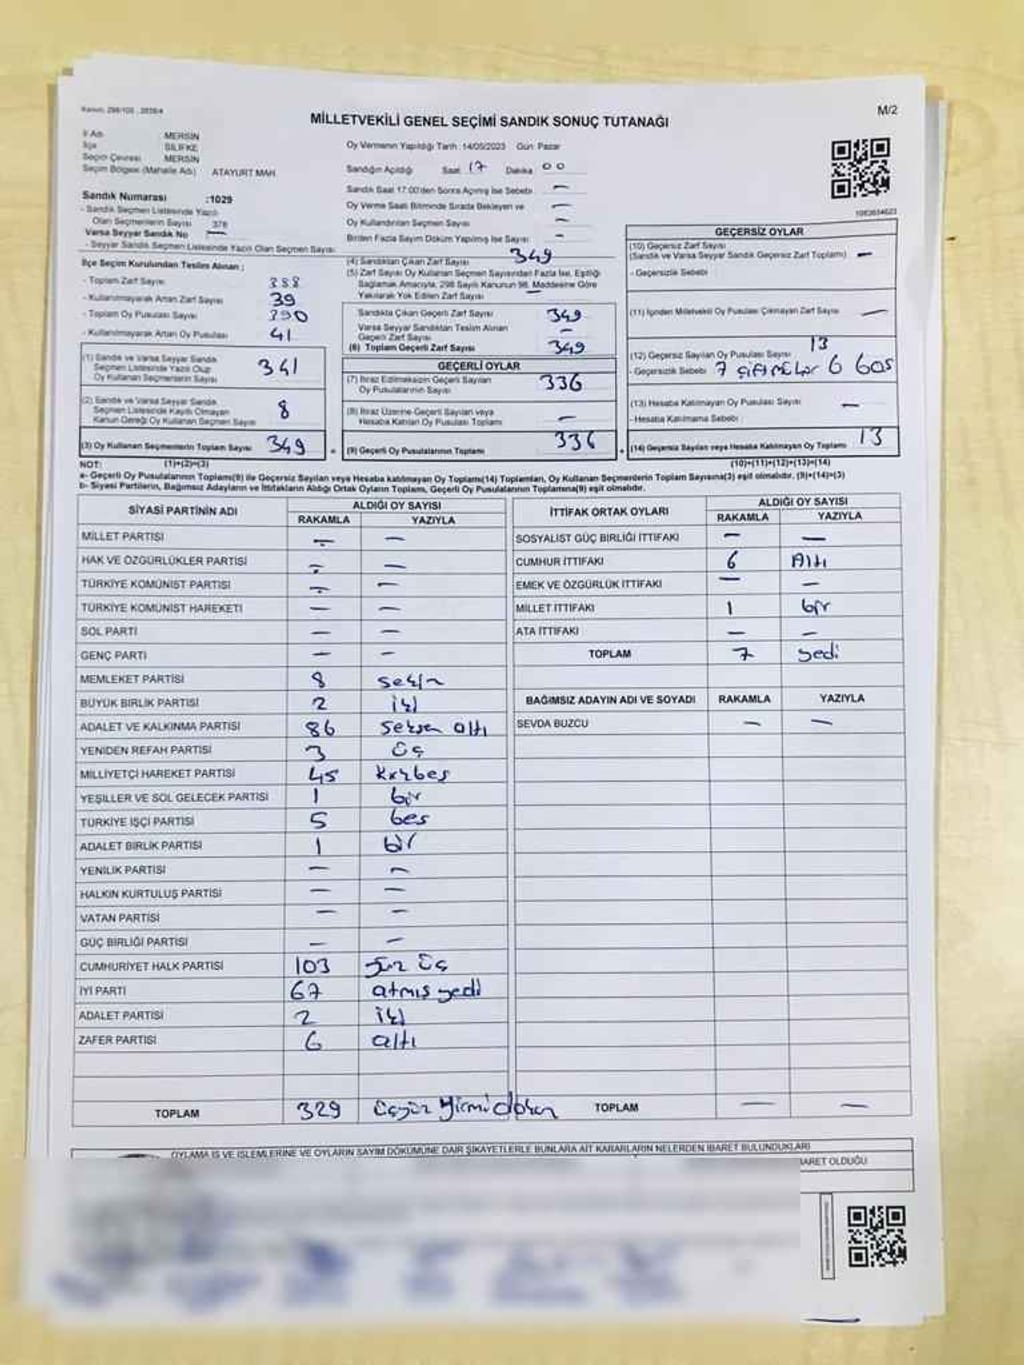 M/2
MİLLETVEKİLİ GENEL SEÇİMİ SANDIK SONUÇ TUTANAĞI
İl Adı : MERSİN
İlçe : SİLİFKE
Seçim Çevresi : MERSİN
Seçim Bölgesi (Mahalle Adı) ATAYURT MAH.
Sandık Numarası :1029
- Sandık Seçmen Listesinde Yazılı
Olan Seçmenlerin Sayısı 378
Varsa Seyyar Sandık No —
- Seyyar Sandık Seçmen Listesinde Yazılı Olan Seçmen Sayısı:
Oy Vermenin Yapıldığı Tarih :14/05/2023 Gün: Pazar
Sandığın Açıldığı Saat 17 Dakika 00
Sandık Saat 17:00'den Sonra Açılmış İse Sebebi —
Oy Verme Saati Bitiminde Sırada Bekleyen ve —
Oy Kullandırılan Seçmen Sayısı —
Birden Fazla Sayım Döküm Yapılmış İse Sayısı —
1083634623
İlçe Seçim Kurulundan Teslim Alınan ;
- Toplam Zarf Sayısı 388
- Kullanılmayarak Artan Zarf Sayısı 39
- Toplam Oy Pusulası Sayısı 390
- Kullanılmayarak Artan Oy Pusulası 41
(1) Sandık ve Varsa Seyyar Sandık
Seçmen Listesinde Yazılı Olup
Oy Kullanan Seçmenlerin Sayısı 341
(2) Sandık ve Varsa Seyyar Sandık
Seçmen Listesinde Kayıtlı Olmayan
Kanun Gereği Oy Kullanan Seçmen Sayısı 8
(3) Oy Kullanan Seçmenlerin Toplam Sayısı 349
(1)+(2)=(3)
(4) Sandıktan Çıkan Zarf Sayısı 349
(5) Zarf Sayısı Oy Kullanan Seçmen Sayısından Fazla İse, Eşitliği
Sağlamak Amacıyla, 298 Sayılı Kanunun 98. Maddesine Göre
Yakılarak Yok Edilen Zarf Sayısı —
Sandıkta Çıkan Geçerli Zarf Sayısı 349
Varsa Seyyar Sandıktan Teslim Alınan
Geçerli Zarf Sayısı —
(6) Toplam Geçerli Zarf Sayısı 349
GEÇERLİ OYLAR
(7) İtiraz Edilmeksizin Geçerli Sayılan
Oy Pusulalarının Sayısı 336
(8) İtiraz Üzerine Geçerli Sayılan veya
Hesaba Katılan Oy Pusulası Toplamı —
(9) Geçerli Oy Pusulalarının Toplamı 336
GEÇERSİZ OYLAR
(10) Geçersiz Zarf Sayısı
(Sandık ve Varsa Seyyar Sandık Geçersiz Zarf Toplamı) —
- Geçersizlik Sebebi
(11) İçinden Milletvekili Oy Pusulası Çıkmayan Zarf Sayısı —
(12) Geçersiz Sayılan Oy Pusulası Sayısı 13
- Geçersizlik Sebebi 7 6 bos
(13) Hesaba Katılmayan Oy Pusulası Sayısı —
- Hesaba Katılmama Sebebi
(14) Geçersiz Sayılan veya Hesaba Katılmayan Oy Toplamı 13
(10)+(11)+(12)+(13)=(14)
NOT:
a- Geçerli Oy Pusulalarının Toplamı(9) ile Geçersiz Sayılan veya Hesaba katılmayan Oy Toplamı(14) Toplamları, Oy Kullanan Seçmenlerin Toplam Sayısına(3) eşit olmalıdır. (9)+(14)=(3)
b- Siyasi Partilerin, Bağımsız Adayların ve İttifakların Aldığı Ortak Oyların Toplamı, Geçerli Oy Pusulalarının Toplamına(9) eşit olmalıdır.
SİYASİ PARTİNİN ADI ALDIĞI OY SAYISI
RAKAMLA YAZIYLA
MİLLET PARTİSİ — —
HAK VE ÖZGÜRLÜKLER PARTİSİ — —
TÜRKİYE KOMÜNİST PARTİSİ — —
TÜRKİYE KOMÜNİST HAREKETİ — —
SOL PARTİ — —
GENÇ PARTİ — —
MEMLEKET PARTİSİ 8 sekiz
BÜYÜK BİRLİK PARTİSİ 2 iki
ADALET VE KALKINMA PARTİSİ 86 seksen altı
YENİDEN REFAH PARTİSİ 3 üç
MİLLİYETÇİ HAREKET PARTİSİ 45 kırkbes
YEŞİLLER VE SOL GELECEK PARTİSİ 1 bir
TÜRKİYE İŞÇİ PARTİSİ 5 bes
ADALET BİRLİK PARTİSİ 1 bir
YENİLİK PARTİSİ — —
HALKIN KURTULUŞ PARTİSİ — —
VATAN PARTİSİ — —
GÜÇ BİRLİĞİ PARTİSİ — —
CUMHURİYET HALK PARTİSİ 103 yüz üç
İYİ PARTİ 67 atmış yedi
ADALET PARTİSİ 2 iki
ZAFER PARTİSİ 6 altı
TOPLAM 329 üçyüz yirmidokuz
İTTİFAK ORTAK OYLARI ALDIĞI OY SAYISI
RAKAMLA YAZIYLA
SOSYALİST GÜÇ BİRLİĞİ İTTİFAKI — —
CUMHUR İTTİFAKI 6 Altı
EMEK VE ÖZGÜRLÜK İTTİFAKI — —
MİLLET İTTİFAKI 1 bir
ATA İTTİFAKI — —
TOPLAM 7 yedi
BAĞIMSIZ ADAYIN ADI VE SOYADI RAKAMLA YAZIYLA
SEVDA BUZCU — —
TOPLAM — —
OYLAMA İŞ VE İŞLEMLERİNE VE OYLARIN SAYIM DÖKÜMÜNE DAİR ŞİKAYETLERLE BUNLARA AİT KARARLARIN NELERDEN İBARET BULUNDUKLARI
BARET OLDUĞU